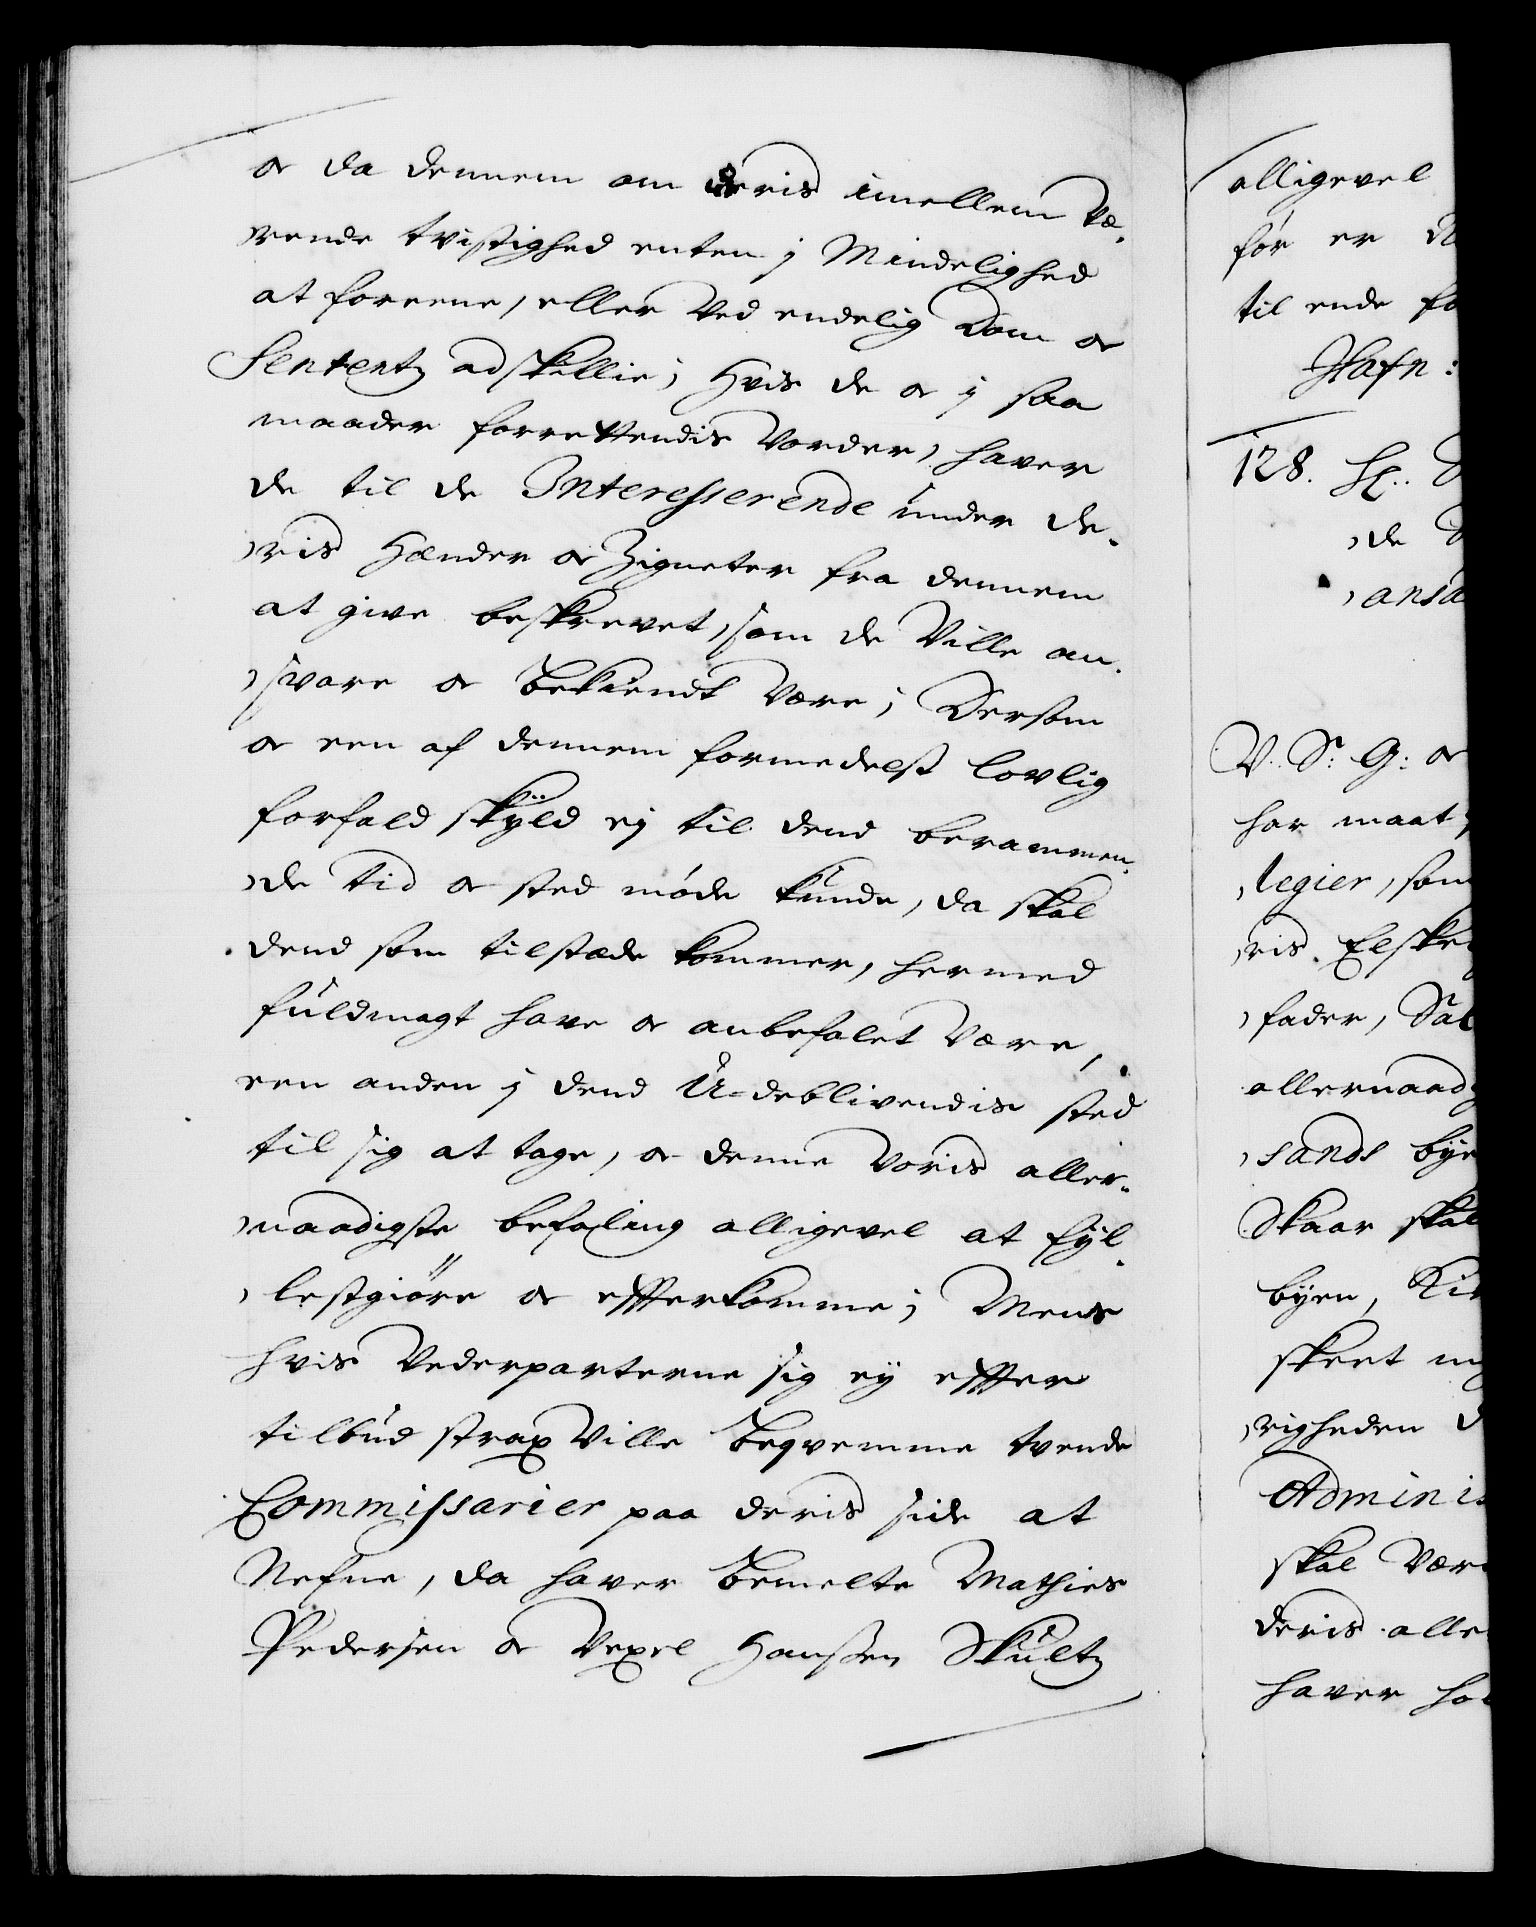 og da dennem om deris imellem Væ-
rende tvistighed enten j Mindelighed
at foreene, eller Ved endelig Dom og
Sententz adskillie; Hvis de og j saa
maader forrettendis Vorder, haver
de til de Interesserende under de-
ris Hænder og Zigneter fra dennem
at give beskrevet, som de Ville an-
svare og bekiendt Være; Dersom
og een af dennem formedelst lovlig
forfald skÿld ej til dend berammen-
de tid og sted møde kunde, da skal
dend som tilstæde kommer, hermed
fuldmagt have og anbefalet Være,
een anden j dend U-deblivendis sted
til sig at tage, og denne Voris aller-
naadigste befaling alligevel at fÿl-
lestgiöre og efterkomme; Mens
hvis Vederparterne sig eÿ efter
tilbud strax Ville beqvemme tvende
Commissarier paa deris side at
Nefne, da haver bemelte Mathies
Pedersen og Vexel Hanssen Skultz
alligevel
før er
til ende
Hafn:
128. Sl.
de
V. S: G: og
har maat
legier, som
ris Elske
fader, Sal
allernaad
sands bÿe
Skaar skal
bÿen,
skeet
righeden
Adminis
skal Være
deris alle
haver